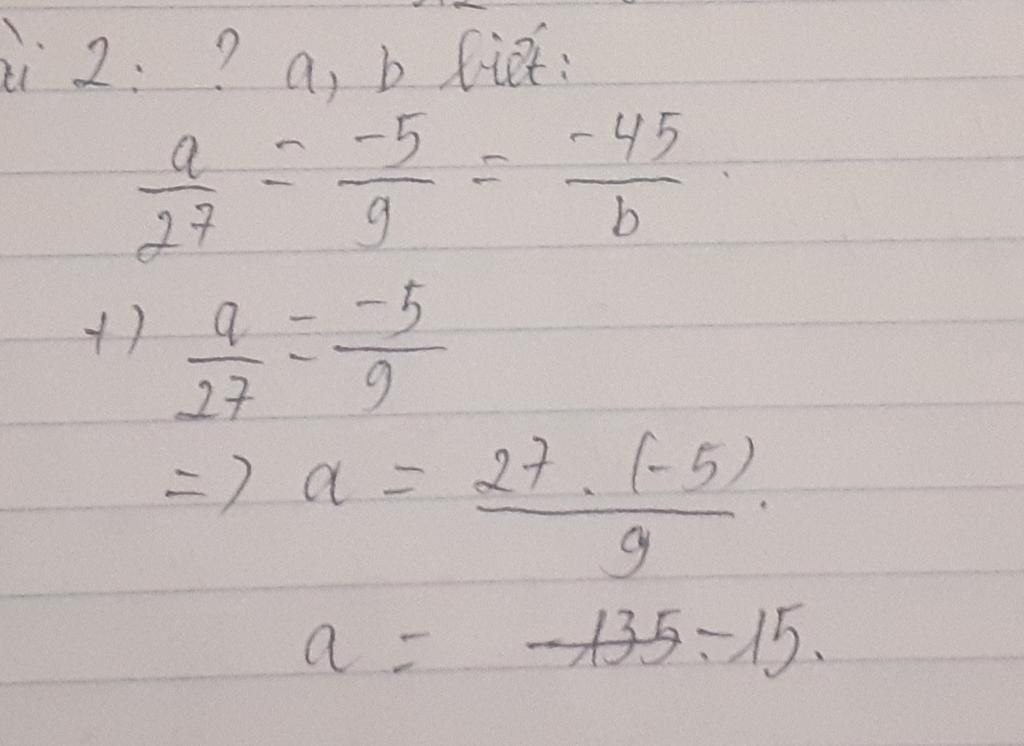 ài 2: ? a, b biết:
a/27 = -5/9 = -45/b.
+) a/27 = -5/9
=) a = 27.(-5)/9.
a = -135 -15.